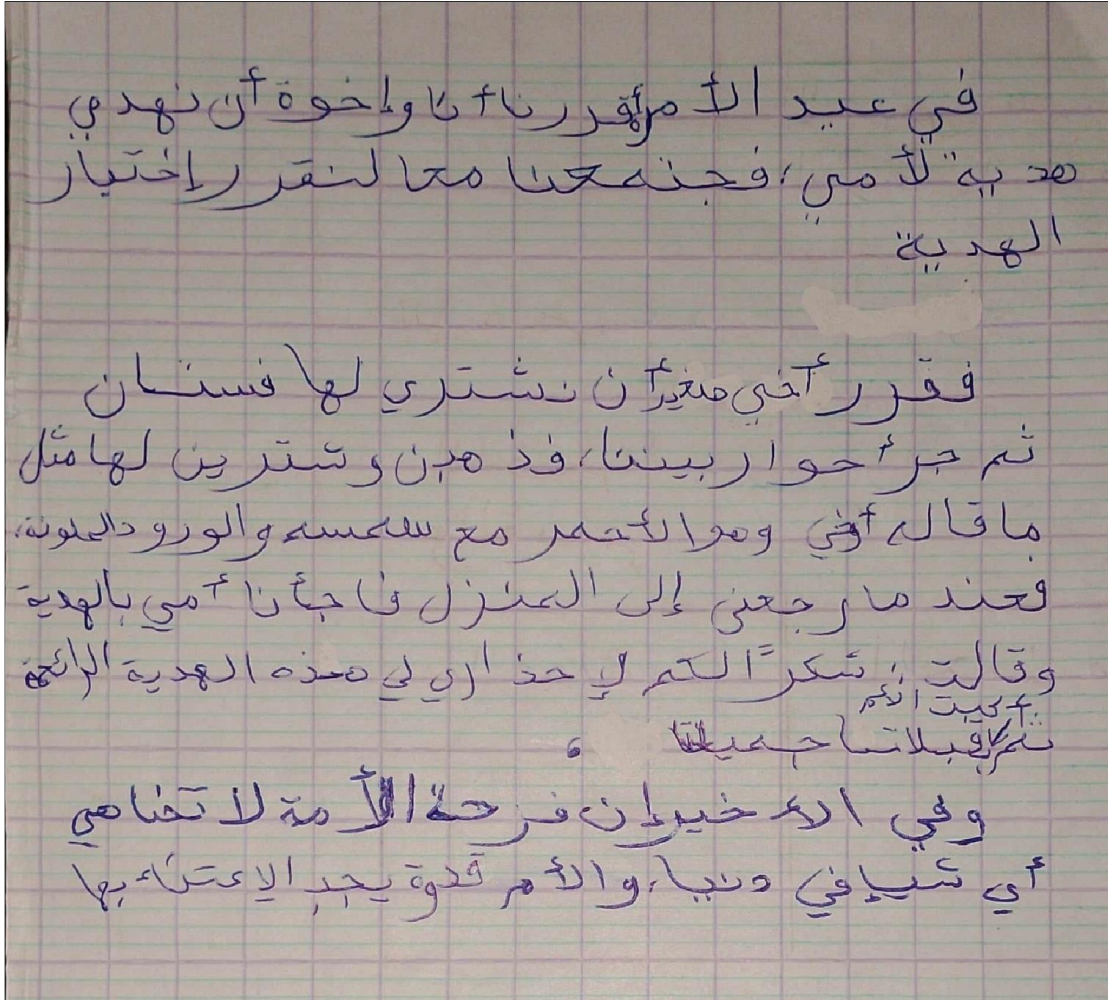 في عيد الأم قررنا أنا وإخوة أن نهدي
هدية لأمي، فجتمعنا معا لنقرر إختيار
الهدية
فقرر أخي صغير أن نشتري لها فستان
ثم جرأ حوار بيننا، فذهبن وشترين لها مثل
ما قاله أخي وهو الأحمر مع سمسه والورود الملونة،
فعند ما رجعنى إلى المنزل فاجأنا أمي بالهدية
وقالت: شكرًا لكم لإحذاري لي هذه الهدية الرائعة
أعيت الأم
ثم قبلاتنا جميلتا
وفي الأخير إن فرحة الأمة لا تضاهي
أي شيإ في دنيا، والأم قدوة يجب الاعتناء بها